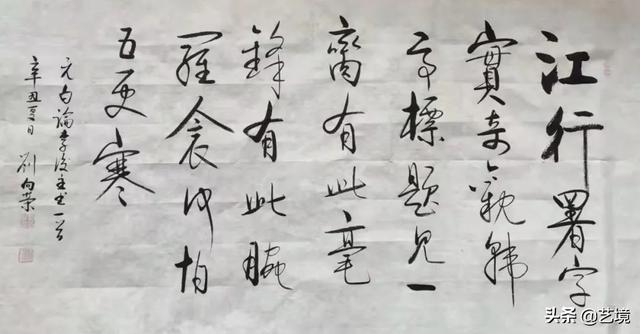 江行署字
實奇觀韓
標題見一
有此毫
鋒有此腕
羅衾何怕
五更寒
元白論李後主書一首
辛丑夏日 劉向榮
头条 @艺境